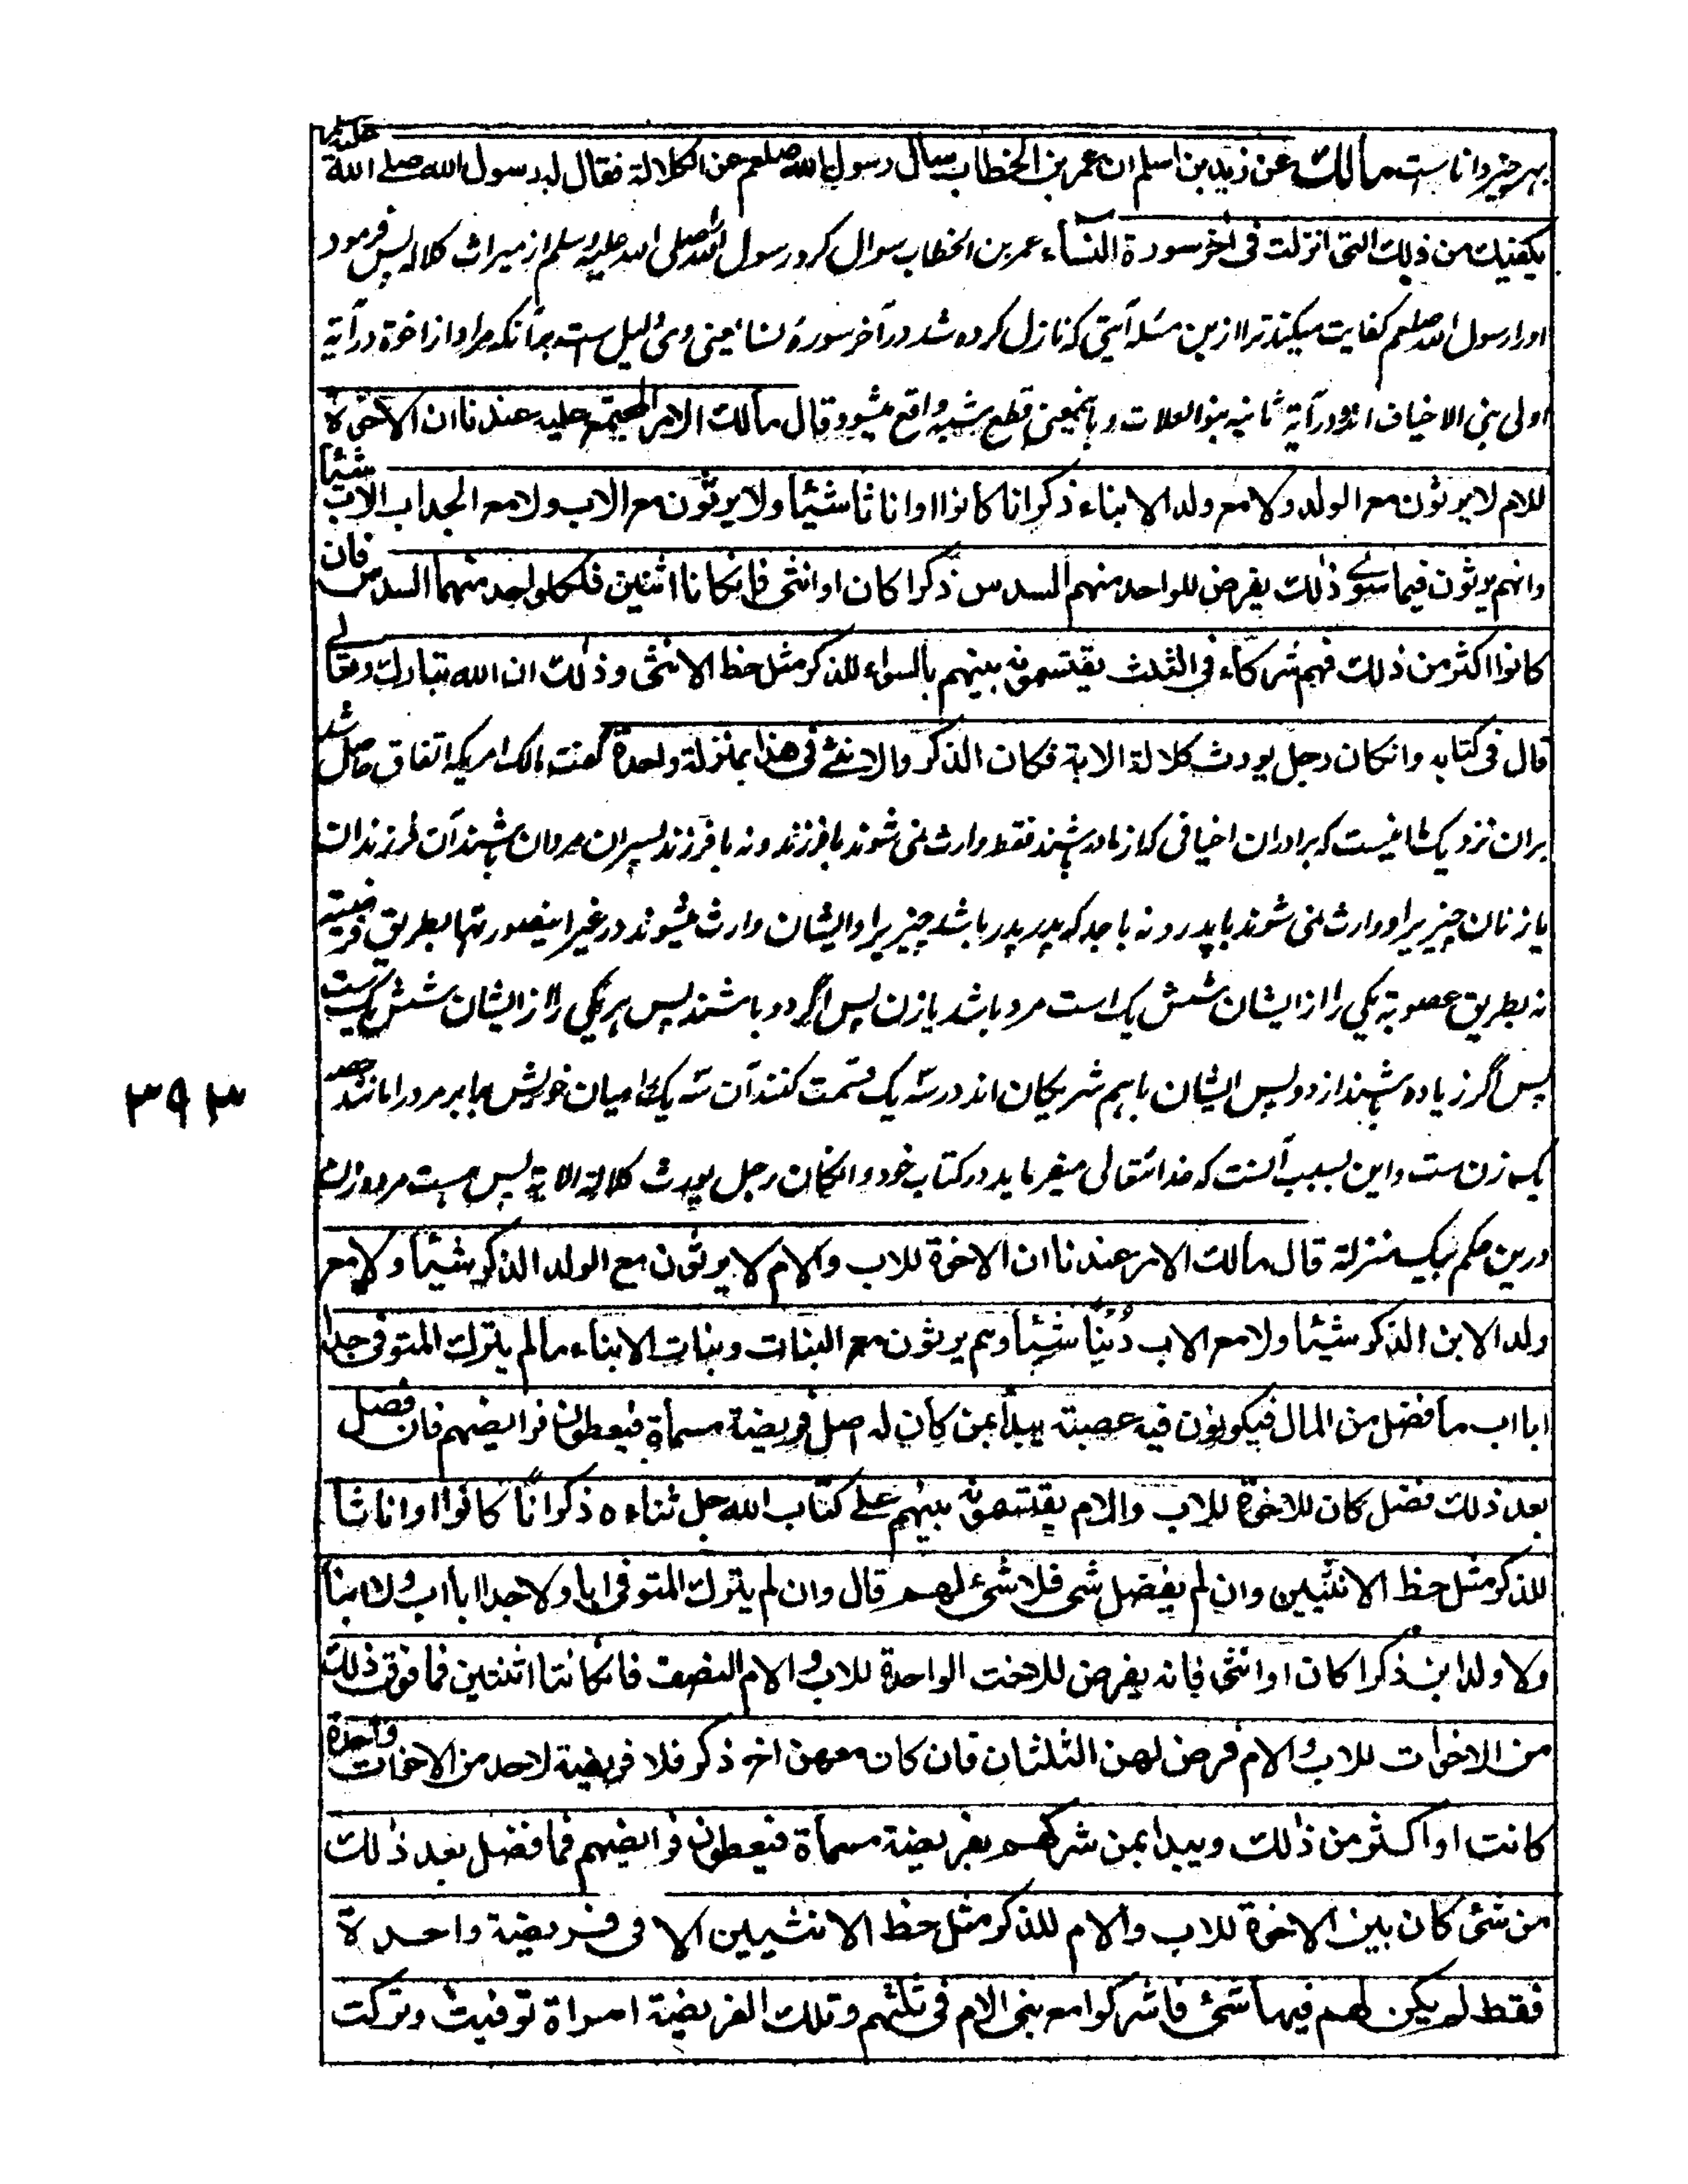 بہر چیز دانا ست مالك عن زيد بن اسلم ان عمر بن الخطاب سأل رسول الله صلعم عن الكلالة فقال له رسول الله صلے الله عليه وسلم
يكفيك من ذلك التى انزلت فى اٰخر سورة النساء عمر بن الخطاب سوال کرد رسول الله صلی الله علیه وسلم از میراث کلاله پس فرمود
اورا رسول الله صلعم کفایت میکند ترا ازین مسئله آیتی که نازل کرده شد در آخر سورهٔ نسا یعنی وی دلیل ست برآنکه مراد از اخوة در آیة
اولی بنی الاخیاف اند و در آیهٔ ثانیه بنو العلات و باینمعنی قطع شبه واقع میشود قال مالك الامر المجتمع عليه عندنا ان الاخوة
للام لا يرثون مع الولد ولا مع ولد الابناء ذكرانا كانوا او اناثا شيئا ولا يرثون مع الاب ولا مع الجد اب الاب شيئا
وانهم يرثون فيما سوى ذلك يفرض للواحد منهم السدس ذكرا كان او انثى فان كانا اثنين فلكل واحد منهما السدس فان
كانوا اكثر من ذلك فهم شركاء فى الثلث يقتسمونه بينهم بالسواء للذكر مثل حظ الانثى وذلك ان الله تبارك وتعالى
قال فى كتابه وان كان رجل يورث كلالة الاية فكان الذكر والانثى فى هذا بمنزلة واحدة گفت مالک امریکه اتفاق حاصل شد
بران نزدیک ما نیست که برادران اخیافی که از مادر باشند فقط وارث نمی شوند با فرزند و نه با فرزند پسران مردان باشند آن فرزندان
یا زنان چیزیرا و وارث نمی شوند با پدر و نه با جد که پدر پدر باشد چیزیرا و ایشان وارث میشوند در غیر اینصورتها بطریق فرضیة
نه بطریق عصوبة یکی را از ایشان شش یک است مرد باشد یا زن پس اگر دو باشند پس هر یکی را از ایشان شش یک ست
پس اگر زیاده باشند از دو پس ایشان باهم شریکان اند در سه یک قسمت کنند آن سه یک را میان خویش برابر مرد را مانند حصه
یک زن ست و این بسبب آنست که خدا تعالی میفرماید در کتاب خود وان كان رجل يورث كلالة الاية پس هست مرد و زن
درین حکم بیک منزلة قال مالك الامر عندنا ان الاخوة للاب والام لا يرثون مع الولد الذكر شيئا ولا مع
ولد الابن الذكر شيئا ولا مع الاب دُنيا شيئا وهم يرثون مع البنات وبنات الابناء ما لم يترك المتوفى جدا
ابا اب ما فضل من المال فيكونون فيه عصبة يبدأ بمن كان له اصل فريضة مسماة فيعطون فرايضهم فان فضل
بعد ذلك فضل كان للاخوة للاب والام يقتسمونه بينهم على كتاب الله جل ثناءه ذكرانا كانوا او اناثا
للذكر مثل حظ الانثيين وان لم يفضل شئ فلا شئ لهم قال وان لم يترك المتوفى ابا ولا جدا ابا اب ولا ابنا
ولا ولد ابن ذكرا كان او انثى فانه يفرض للاخت الواحدة للاب والام النصف فان كانتا اثنتين فما فوق ذلك
من الاخوات للاب والام فرض لهن الثلثان فان كان معهن اخ ذكر فلا فريضة لاحد من الاخوات واحدة
كانت او اكثر من ذلك ويبدأ بمن شركهم بفريضة مسماة فيعطون فرايضهم فما فضل بعد ذلك
من شئ كان بين الاخوة للاب والام للذكر مثل حظ الانثيين الا فى فريضة واحدة
فقط لم يكن لهم فيها شئ فاشركوا مع بنى الام فى ثلثهم وتلك الفريضة امراة توفيت وتركت
۳۹۳